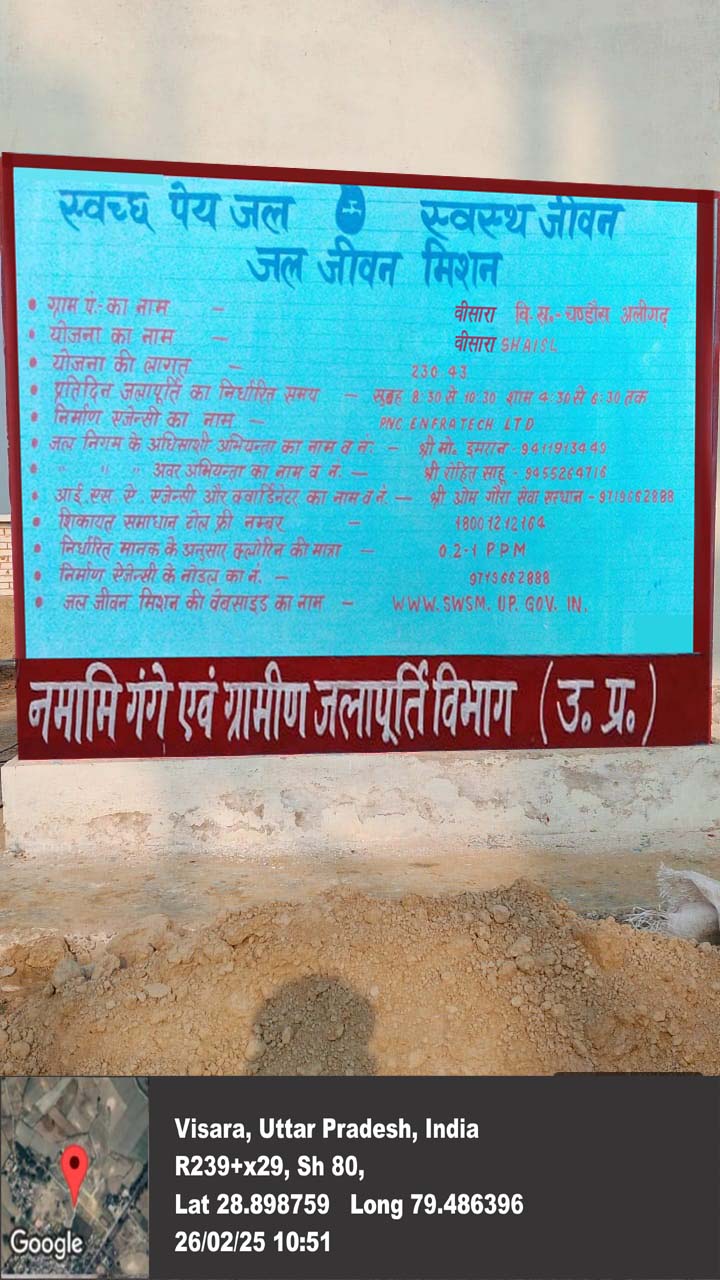 स्वच्छ पेय जल स्वस्थ जीवन
जल जीवन मिशन
• ग्राम पं॰ का नाम – वीसारा वि.ख.-चण्डौस अलीगढ़
• योजना का नाम – वीसारा SHAISL
• योजना की लागत – 230.43
• प्रतिदिन जलापूर्ति का निर्धारित समय – सुबह 8:30 से 10:30 शाम 4:30 से 6:30 तक
• निर्माण एजेन्सी का नाम – PNC ENFRATECH LTD
• जल निगम के अधिसाशी अभियन्ता का नाम व नं. – श्री मो. इमरान - 9411913449
• " " " अवर अभियन्ता का नाम व नं. – श्री रोहित साहू - 9455264716
• आई.एस.ए. एजेन्सी और क्वार्डिनेटर का नाम व नं. – श्री ओम गौरा सेवा संस्थान - 9719662888
• शिकायत समाधान टोल फ्री नम्बर – 18001212164
• निर्धारित मानक के अनुसार क्लोरिन की मात्रा – 0.2-1 PPM
• निर्माण ऐजेन्सी के नोडल का नं. – 9719662888
• जल जीवन मिशन की वेबसांइड का नाम – WWW.SWSM.UP.GOV.IN.
नमामि गंगे एवं ग्रामीण जलापूर्ति विभाग (उ.प्र.)
Visara, Uttar Pradesh, India
R239+x29, Sh 80,
Lat 28.898759 Long 79.486396
26/02/25 10:51
Google